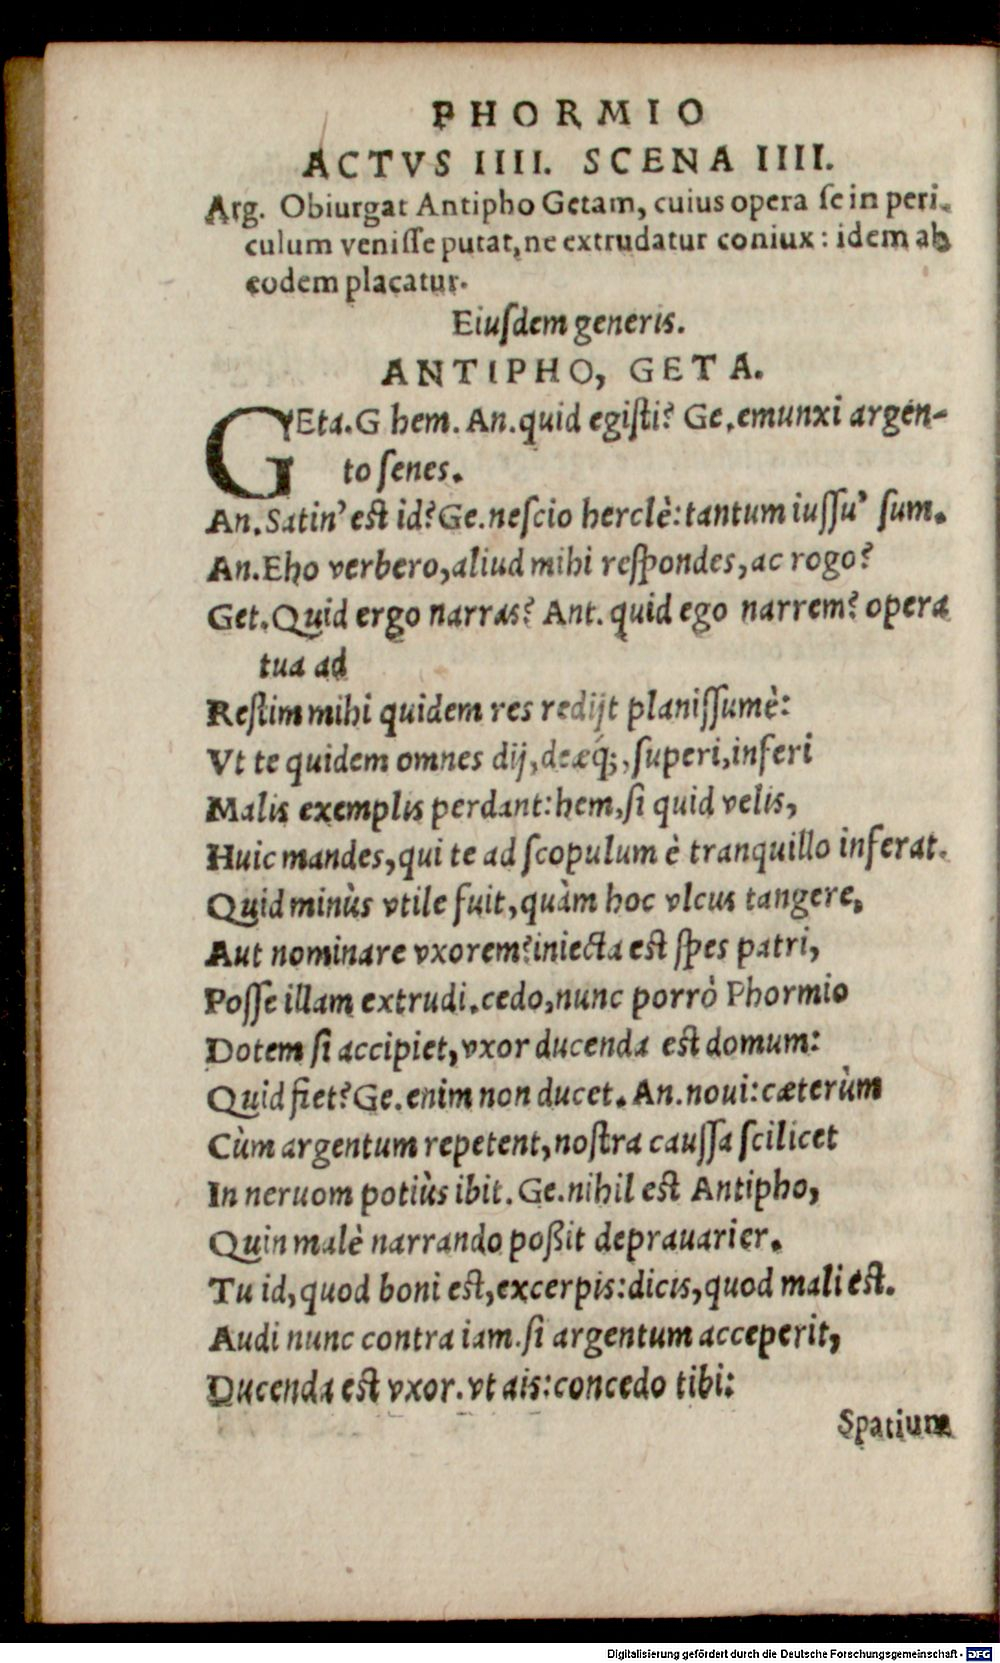 PHORMIO
ACTVS IIII. SCENA IIII.
Arg. Obiurgat Antipho Getam, cuius opera ſe in peri-
culum veniſſe putat, ne extrudatur coniux: idem ab
eodem placatur.
Eiuſdem generis.
ANTIPHO, GETA.
GEta. G hem. An. quid egiſti? Ge. emunxi argen-
to ſenes.
An. Satin' eſt id? Ge. neſcio herclè: tantum iuſſu' ſum.
An. Eho verbero, aliud mihi reſpondes, ac rogo?
Get. Quid ergo narras? Ant. quid ego narrem? opera
tua ad
Reſtim mihi quidem res redijt planiſſumè:
Vt te quidem omnes dij, deæq́;, ſuperi, inferi
Malis exemplis perdant: hem, ſi quid velis,
Huic mandes, qui te ad ſcopulum è tranquillo inferat.
Quid minùs vtile fuit, quàm hoc vlcus tangere,
Aut nominare vxorem? iniecta eſt ſpes patri,
Poſſe illam extrudi. cedo, nunc porrò Phormio
Dotem ſi accipiet, vxor ducenda eſt domum:
Quid fiet? Ge. enim non ducet. An. noui: cæterùm
Cùm argentum repetent, noſtra cauſſa ſcilicet
In neruom potiùs ibit. Ge. nihil eſt Antipho,
Quin malè narrando poßit deprauarier.
Tu id, quod boni eſt, excerpis: dicis, quod mali eſt.
Audi nunc contra iam. ſi argentum acceperit,
Ducenda eſt vxor. vt ais: concedo tibi:
Spatium
Digitalisierung gefördert durch die Deutsche Forschungsgemeinschaft - DFG